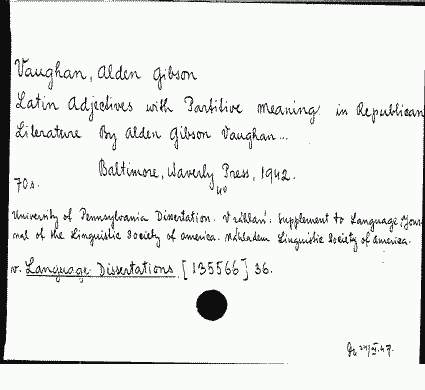 Vaughan, Alden Gibson
Latin Adjectives with Partitive Meaning in Republican
Literature By Alden Gibson Vaughan...
Baltimore, Waverly Press, 1942.
70 s. 4°
University of Pennsylvania Dissertation. V záhlaví: Supplement to Language, Jour-
nal of the Linguistic Society of America. Nákladem Linguistic Society of America.
v. Language Dissertations [135566] 36.